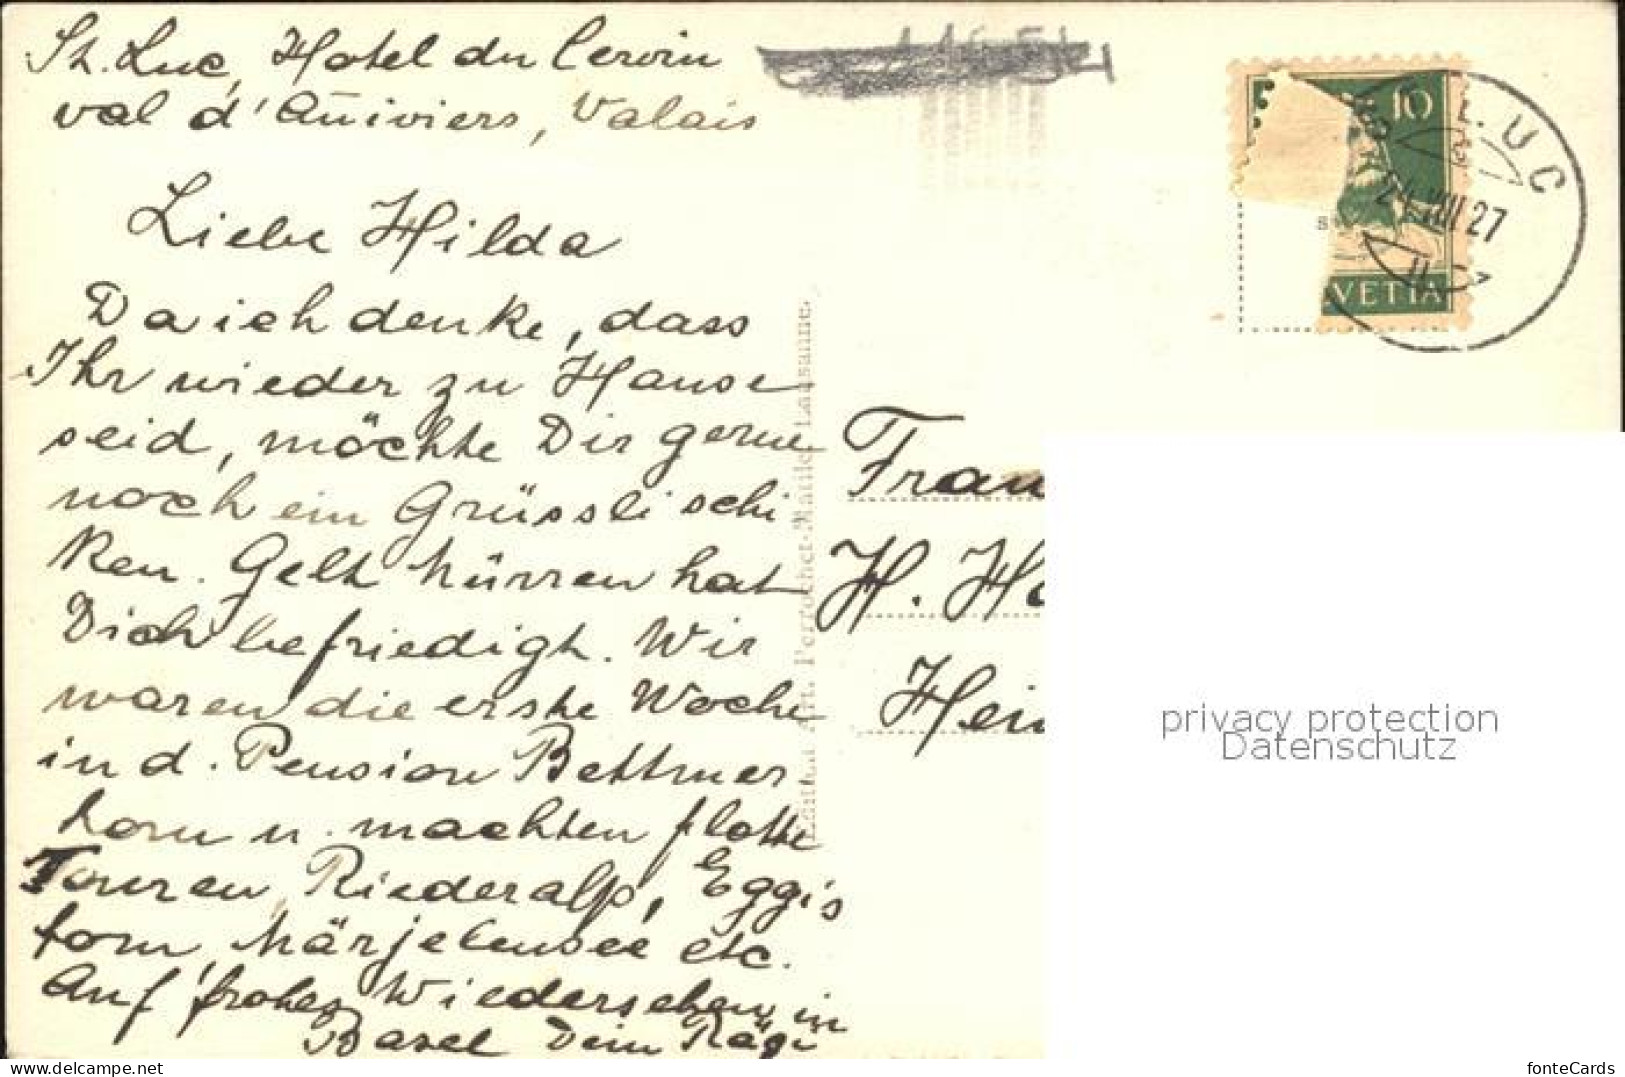 St. Luc, Hotel du Cervin
val d'Anniviers, Valais
Liebe Hilda
Da ich denke, dass
Ihr wieder zu Hause
seid, möchte Dir gerne
noch ein Grüssli schi
ken. Gelt Mürren hat
Dich befriedigt. Wir
waren die erste Woche
in d. Pension Bettmer
horn u. machten flotte
Touren, Riederalp, Eggis
horn, Märjelensee etc.
Auf frohes Wiedersehen in
Basel Dein Rägi
Edition Art. Perrochet-Matile, Lausanne.
10
VETIA
LUC
24.VIII.27
Frau
H. Ho
Hein
privacy protection
Datenschutz
www.delcampe.net
fonteCards